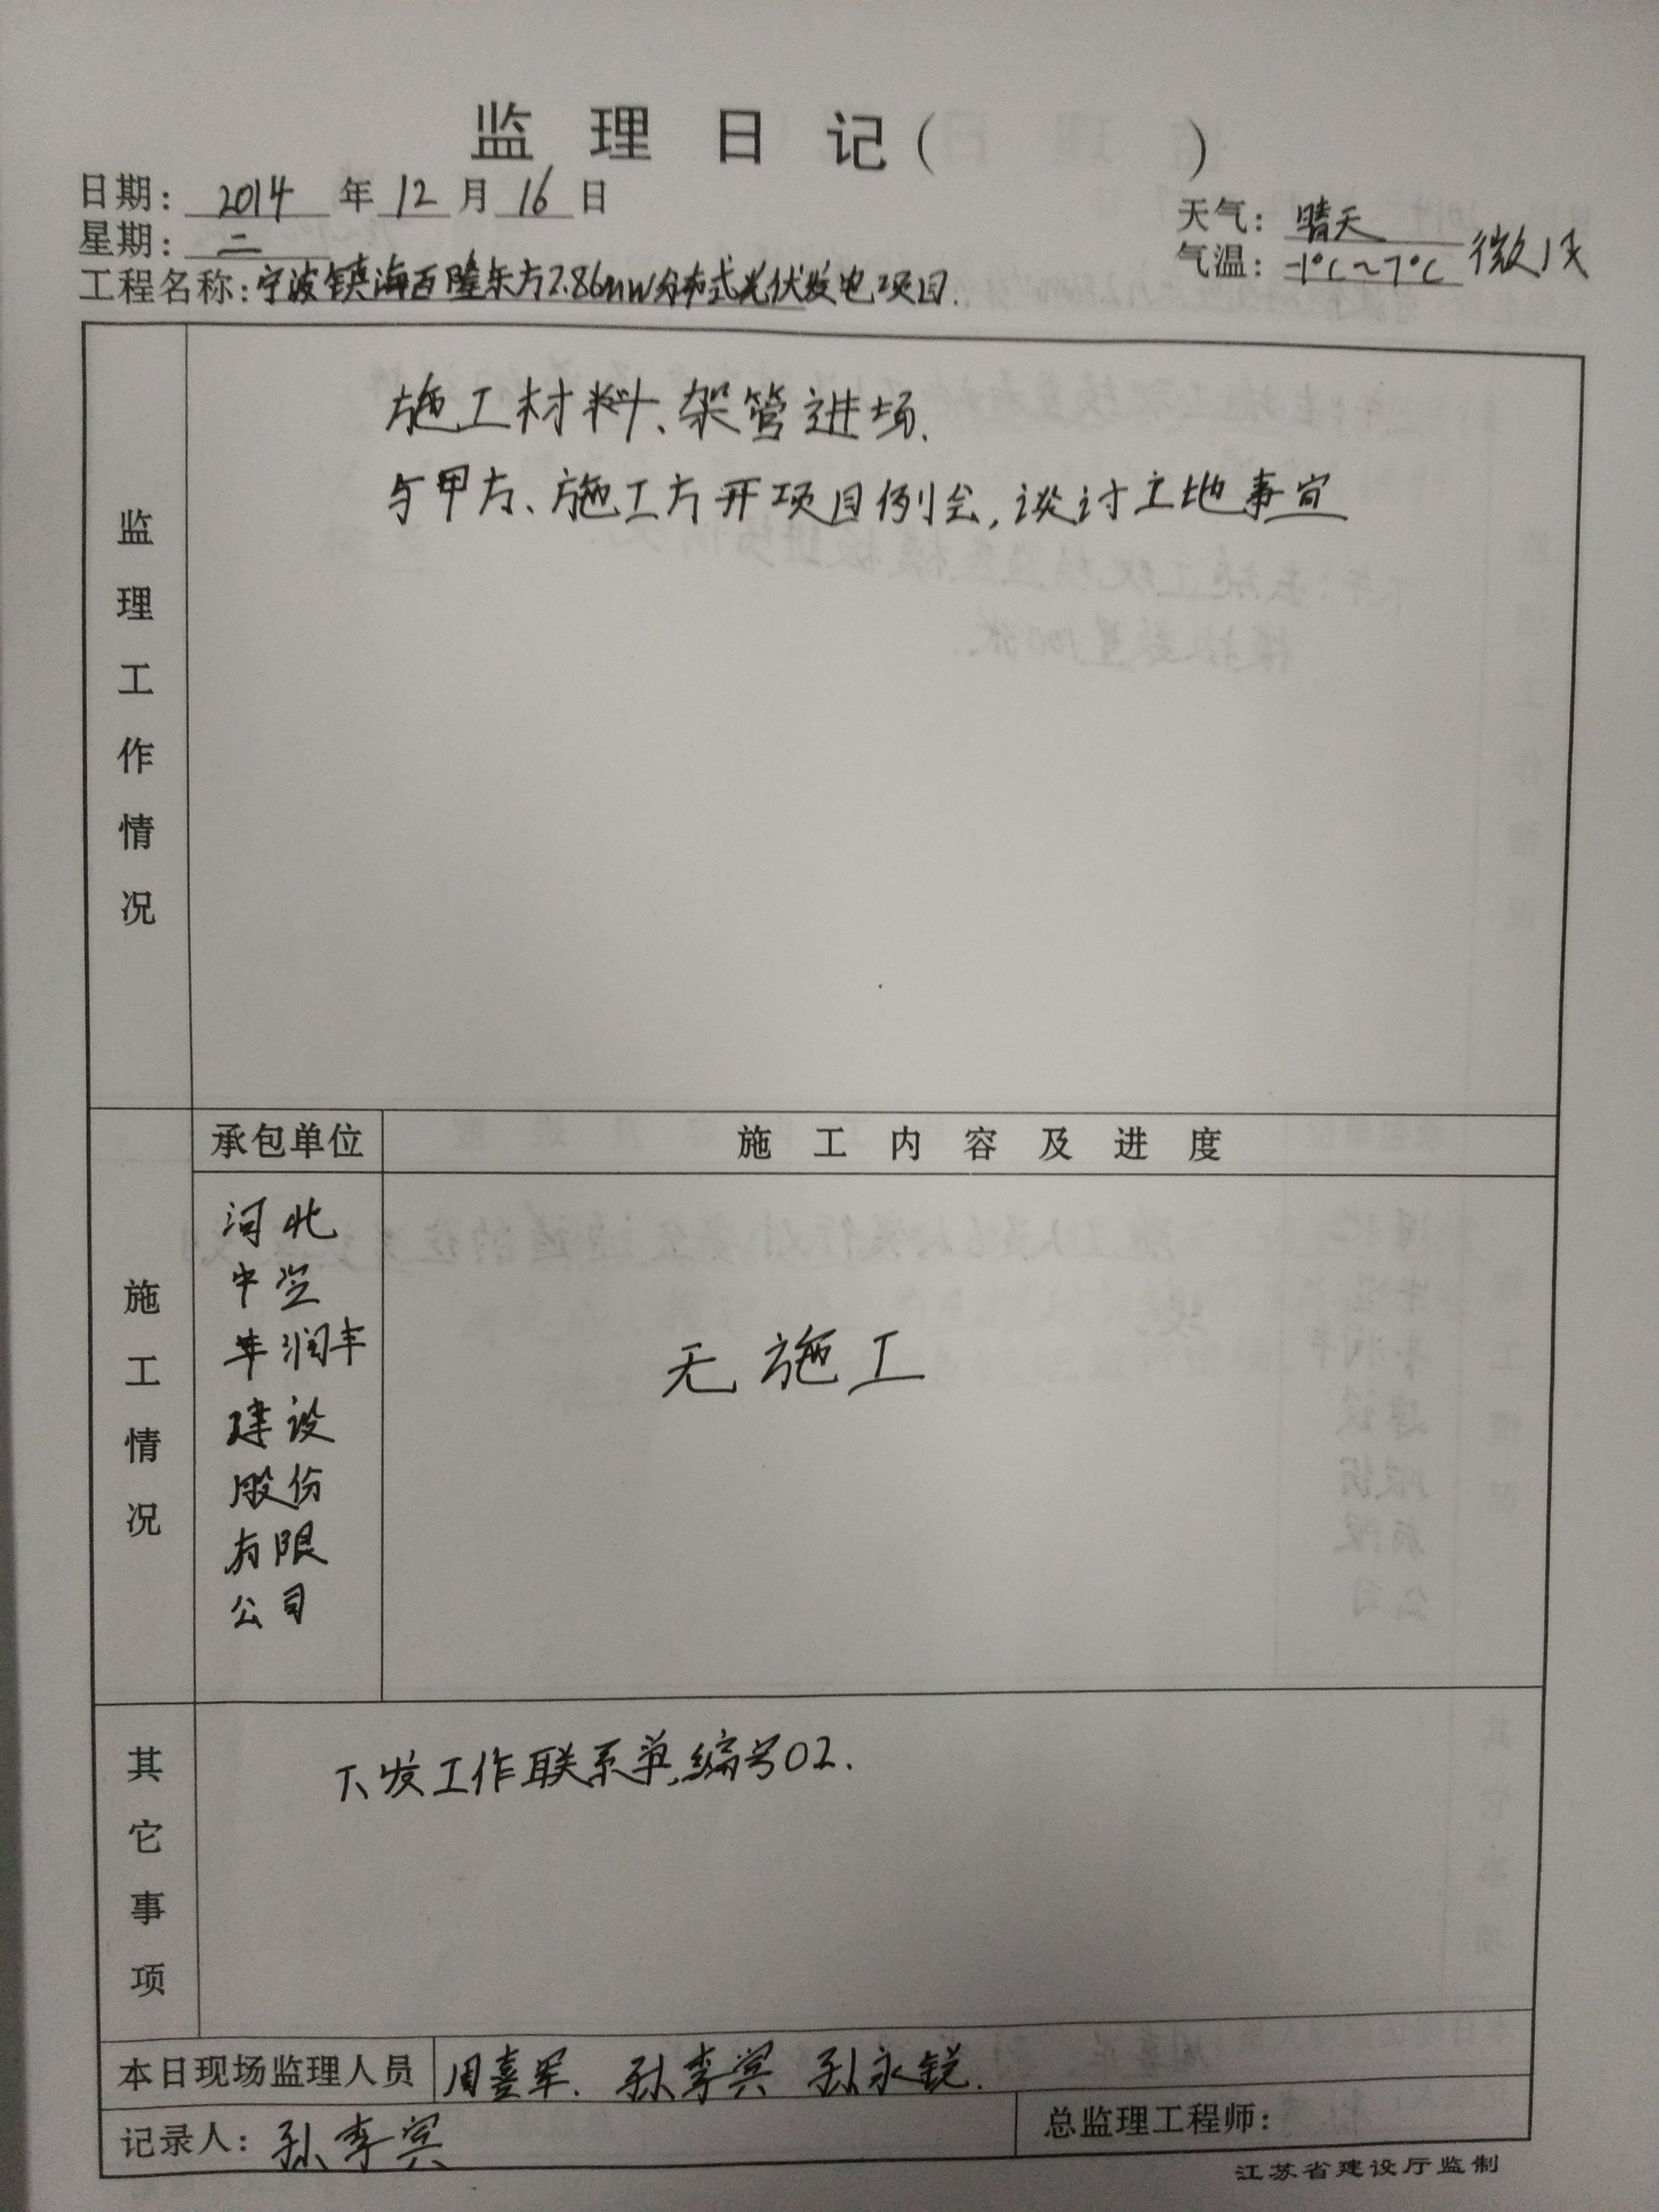 监理日记( )
日期: 2014 年 12 月 16 日
天气: 晴天
星期: 二
气温: -1℃~7℃ 微风
工程名称: 宁波镇海百隆东方7.86MW分布式光伏发电项目.
监理工作情况
施工材料、架管进场.
与甲方、施工方开项目例会,谈讨土地事宜
施工情况
承包单位
施工内容及进度
河北
中
丰润丰
建设
股份
有限
公司
无施工
其它事项
下发工作联系单,编号02.
本日现场监理人员 周喜军. 孙李宾 孙永锐.
记录人: 孙李宾
总监理工程师:
江苏省建设厅监制